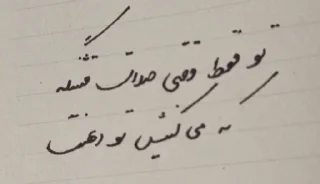 تو فقط وقتی صدات قشنگه
که می کنیش تو دهنت